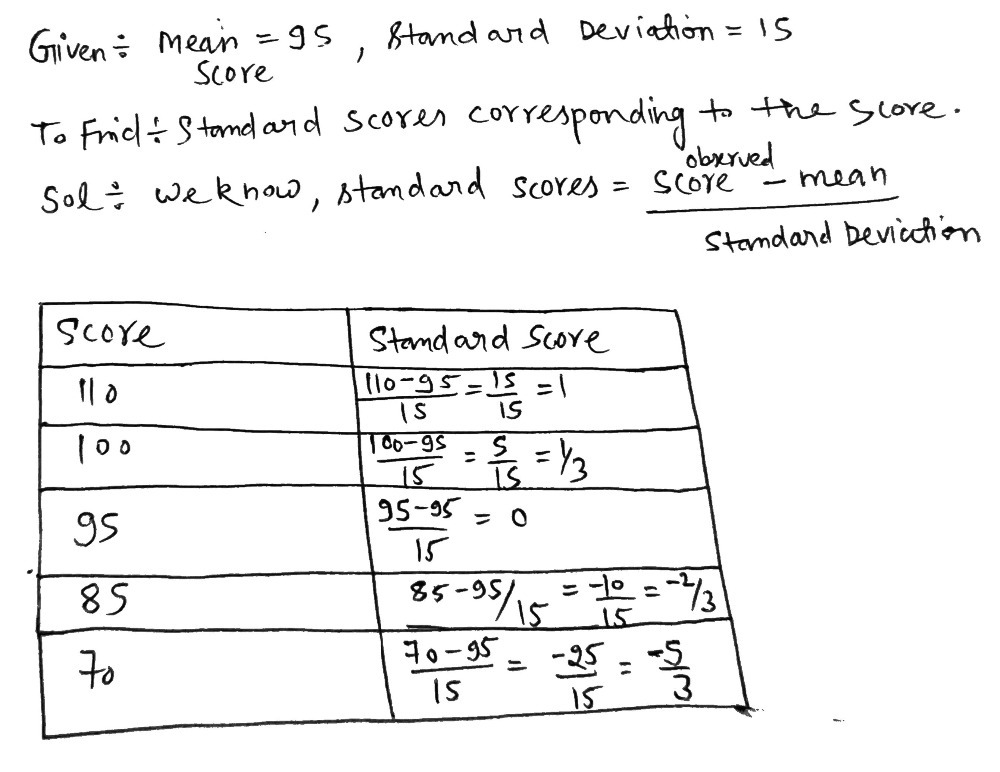 Given ÷ Mean = 95 , Standard Deviation = 15
Score
To Find ÷ Standard scores corresponding to the score.
Sol ÷ we know, standard scores = observed score - mean
Standard Deviation
Score Standard Score
110 110-95/15 = 15/15 = 1
100 100-95/15 = 5/15 = 1/3
95 95-95/15 = 0
85 85-95/15 = -10/15 = -2/3
70 70-95/15 = -25/15 = -5/3